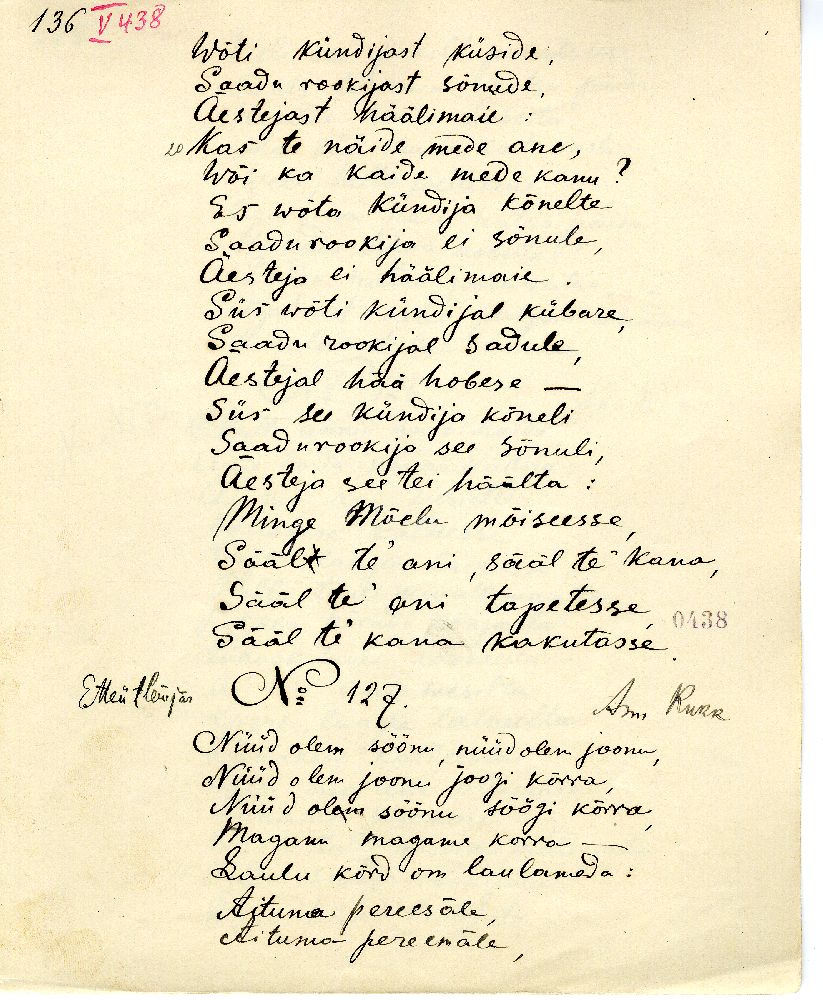 136 V 438
Wõti kündijast küside,
Saadu rookijast sõnude,
Äestejast häälimaie :
20 Kas te näide mede ane,
Wõi ka kaide mede kanu?
Es wõta kündija kõnelte
Saadurookija ei sõnule,
Äesteja ei häälimaie.
Siis wõti kündijal kübare,
Saadu rookijal sadule,
Äestejal hää hobese —
Siis see kündija kõneli
Saadurookija see sõnuli,
Äesteja see tei häälta :
Minge Mõelu mõiseesse,
Sääl te' ani, sääl te' kana,
Sääl te' ani tapetesse,
0438
Sääl te' kana kakutasse.
No 127.
Ann Kukk
Nüüd olem söönu, nüüd olem joonu,
Nüüd olem joonu joogi kõrra,
Nüüd olem söönu söögi kõrra,
Maganu magame korra —
Laulu kõrd om laulameda :
Aituma pereesäle,
Aituma pereemäle,